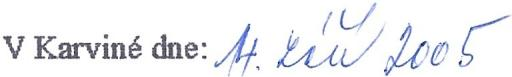 V Karviné dne: 14. září 2005